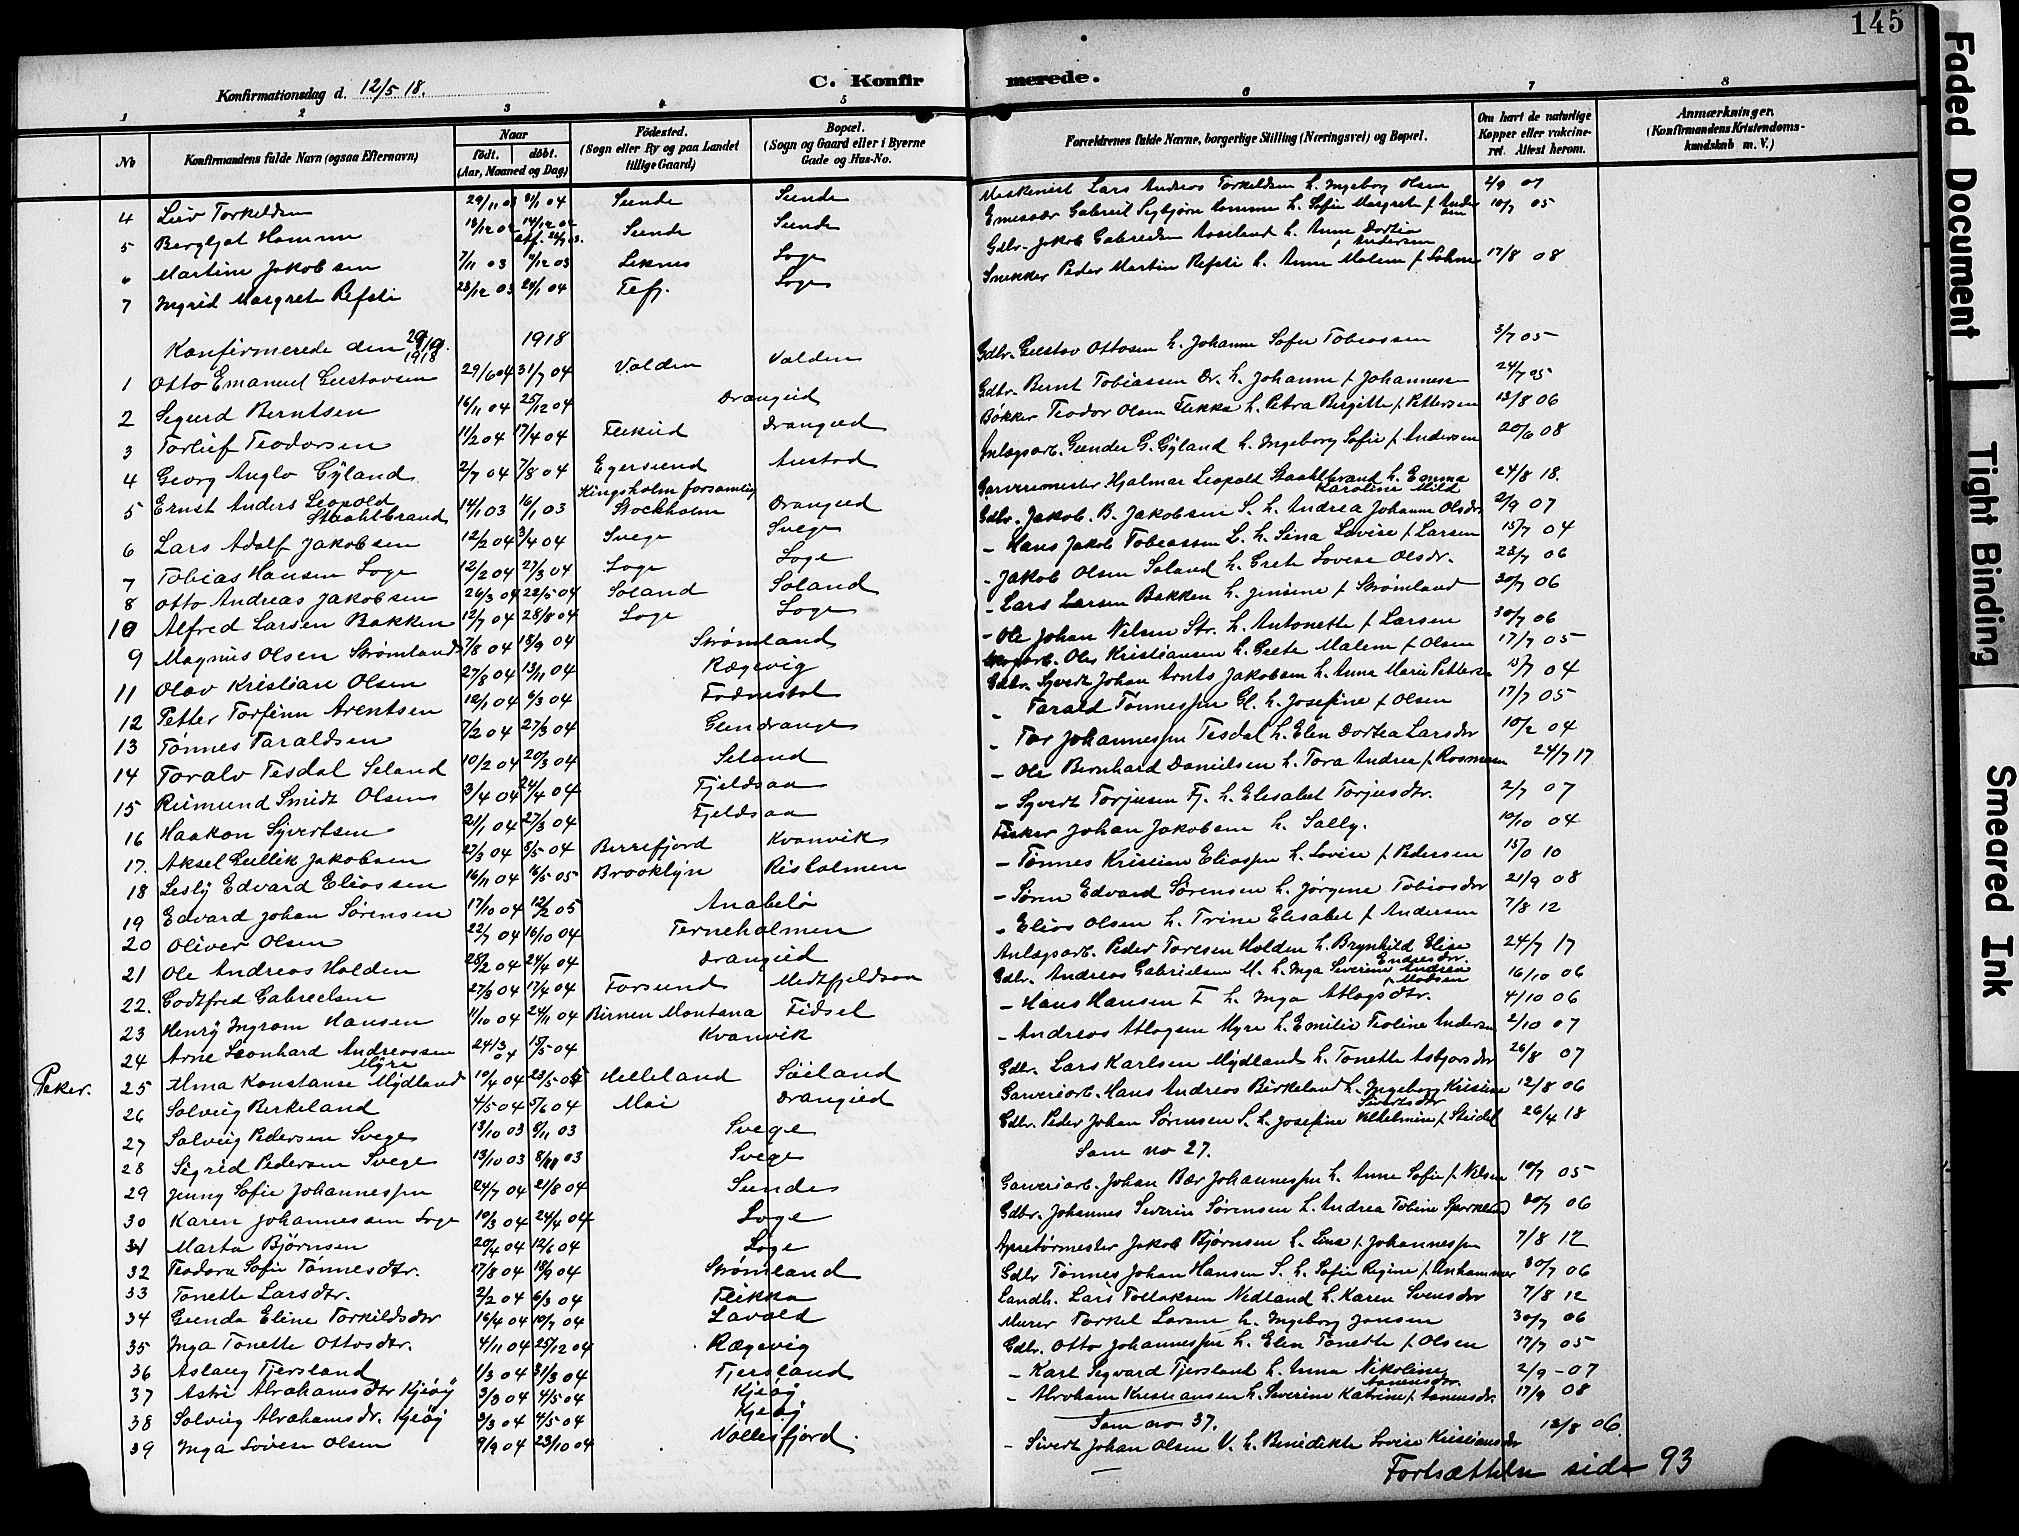 145
Konfirmationsdag d. 12/5 18.
C. Konfirmerede.
1 2 3 4 5 6 7 8
No
Konfirmandens fulde Navn (ogsaa Efternavn)
Naar
født. døbt.
(Aar, Maaned og Dag)
Fødested.
(Sogn eller By og paa Landet
tillige Gaard)
Bopæl.
(Sogn og Gaard eller i Byerne
Gade og Hus-No.
Forældrenes fulde Navne, borgerlige Stilling (Næringsvei) og Bopæl.
Om havt de naturlige
Kopper eller vakcine-
ret. Attest herom.
Anmærkninger.
(Konfirmandens Kristendoms-
kundskab m. V.)
4 Liv Torkeldsen 29/11 03 8/1 04 Sunde Sunde Maskinist Lars Andreas Torkeldsen h. Ingeborg Olsen 2/9 07
5 Bergljot Hamme Sunde Sunde Gabriel Hamme h. Sofie Margret f. Andersen 18/7 05
6 Martine Jakobsen 7/11 03 Leknes Loge Gdbr. Jakob Gabrielsen h. Anne Dortea Andersen
7 Ingrid Margrete Refsti 28/12 03 24/1 04 Fef. Loge Snekker Peder Martin Refsti h. Anne Malene f. 17/8 08
Konfirmerede den 29/9 1918 1918
1 Otto Emanuel Gustavsen 29/6 04 31/7 04 Valden Valden Gdbr. Gustav Ottosen h. Johanne Sofie Tobiassen 3/7 05
2 Sigurd Berntsen 16/11 04 25/12 04 Drangeid Gdbr. Bernt Tobiassen Dr. h. Johanne f. Johannesen 24/7 05
3 Torleif Teodorsen 11/2 04 17/4 04 Fleküd Drangeid Bøkker Teodor Olsen Flikka h. Petra Birgitte f. Pettersen 13/8 06
4 Georg Anglo Gyland 2/7 04 7/8 04 Egersund Austad Anlægsarb. Gunder G. Gyland h. Ingeborg Sofie f. Andersen 20/6 08
5 Ernst Anders Leopold Staahlbrand 14/1 03 16/1 03 Kingsholm forsamling Stockholm Drangeid Garverimester Hjalmar Leopold Staahlbrand h. Emma Karoline Mild 24/8 18.
6 Lars Adolf Jakobsen 12/2 04 3/4 04 Svege Svege Gdbr. Jakob B. Jakobsen S. h. Andrea Johanne Olsdr 2/9 07
7 Tobias Hansen Loge 12/2 04 27/3 04 Loge Loge - Hans Jakob Tobiassen L. h. Sina Lovise f. Larsen 15/7 04
8 Otto Andreas Jakobsen 26/3 04 22/5 04 Soland Soland - Jakob Olsen Soland h. Grete Lovise Olsdr. 28/7 06
10 Alfred Larsen Bakken 12/7 04 28/8 04 Loge Loge - Lars Larsen Bakken h. Jensine f. Strømland 30/7 06
9 Magnus Olsen Strømland 7/8 04 18/9 04 Strømland - Ole Johan Nilsen Str. h. Antonette f. Larsen 30/7 06
11 Olav Kristian Olsen 27/8 04 13/11 04 Rægevig Ole Kristiansen h. Grete Malene f. Olsen 17/7 05
12 Petter Torfinn Arentsen 12/1 04 6/3 04 Fodnestol Gdbr. Syvert Johan Arnts Jakobsen h. Anne Marie Pettersen 15/7 04
13 Tønnes Taraldsen 7/2 04 27/3 04 Glendrange - Tarald Tønnessen Gl. h. Josefine f. Olsen 17/7 05
14 Toralv Tesdal Seland 10/2 04 20/3 04 Seland - Tor Johannessen Tesdal h. Elen Dortea Larsdtr 10/2 04
15 Reimund Smidt Olsen 3/4 04 24/4 04 Fjeldsaa - Ole Bernhard Danielsen h. Tora Andrea f. Rosmussen 24/7 17
16 Haakon Syvertsen 21/1 04 27/3 04 Fjeldsaa - Syvert Torjusen Fj. h. Elisabet Torjusdtr. 2/7 07
17. Aksel Gullik Jakobsen 27/3 04 8/5 04 Berrefjord Kvanvik Fisker Johan Jakobsen h. Sally. 10/10 04
18 Lesly Edvard Eliassen 16/11 04 16/5 05 Brooklyn Risholmen - Tønnes Kristian Eliassen h. Lovise f. Pedersen
19 Edvard Johan Sørensen 17/10 04 12/2 05 Anabelø - Søren Edvard Sørensen h. Jørgine Tobiasdtr 21/9 08
20 Oliver Olsen 22/7 04 16/10 04 Terneholmen - Elias Olsen h. Trine Elisabet f. Andersen 7/8 12
21 Ole Andreas Holden 28/2 04 24/4 04 Drangeid Anlægsarb. Peder Toresen Holden h. Brynhild Elise Endresdtr. 24/7 17
22. Godtfred Gabrielsen 27/3 04 17/4 04 Forsund Midtfjeldsaa Gdbr. Andreas Gabrielsen M. h. Inga Severine Andrea f. Madsen 16/10 06
23 Henry Ingram Hansen 11/10 04 24/11 04 Birnen Montana Fidsel - Hans Hansen F. h. Inga Atlagsdtr. 4/10 06
24 Arne Leonhard Andreassen Myre 24/3 04 15/5 04 Kvanvik - Andreas Atlagsen Myre h. Emilie Teoline Andersen 2/10 07
Peker. 25 Alma Konstanse Mydland 10/4 04 23/5 04 Helleland Søiland Gdbr. Lars Karlsen Mydland h. Tonette Asbjørsdtr 26/8 07
26 Solveig Birkeland 4/5 04 5/6 04 Moi Drangeid Garveriarb. Hans Andreas Birkeland h. Ingeborg Kristine Sivertsdtr 12/8 06
27 Solveig Pedersen Svege 13/10 03 8/11 03 Svege Gdbr. Peder Johan Sørensen S. h. Josefine Vilhelmine f. Steidel 26/4 18
28 Sigrid Pedersen Svege 13/10 03 8/11 03 Svege Som no 27.
29 Jenny Sofie Johannessen 24/7 04 21/8 04 Sunde Garveriarb. Johan Bær Johannessen h. Anne Sofie f. Nilsen 10/7 05
30 Karen Johannessen Loge 10/3 04 24/4 04 Loge Gdbr. Johannes Severin Sørensen h. Andrea Tobine Sporkland 30/7 06
31 Marta Bjørnsen 20/4 04 12/6 04 Loge Apretørmester Jakob Bjørnsen h. Lina f. Johannessen 7/8 12
32 Teodora Sofie Tønnesdtr. 17/8 04 18/9 04 Strømland Gdbr Tønnes Johan Hansen S. h. Sofie Regine f. Anhammer 30/7 06
33 Tonette Larsdtr. 2/2 04 6/3 04 Flikka Landh. Lars Tollaksen Nedland h. Karen Svensdtr 7/8 12
34 Gunda Eline Torkildsdtr 16/4 04 10/7 04 Lavold Murer Torkel Larsen h. Ingeborg Jansen 30/7 06
35 Inga Tonette Ottosdtr. 4/11 04 25/12 04 Rægevig Gdbr. Otto Johannessen h. Elin Tonette f. Olsen 17/7 05
36 Aslaug Tjersland 1/3 04 31/3 04 Tjersland - Karl Sigvard Tjersland h. Anna Nikoline 2/9 - 07
37 Astri Abrahamsdtr Kjeøy 3/3 04 4/5 04 Kjeøy - Abraham Kristiansen h. Severine Katrine f. Aanensdtr. 17/9 08
38 Solveig Abrahamsdr. Kjeøy 3/3 04 4/5 04 Kjeøy Som no 37.
39 Inga Lovise Olsen 9/9 04 23/10 04 Vollesfjord. - Sivert Johan Olsen V. h. Benedikte Lovise Kristiansdtr 13/8 06.
Fortsættelse side 93
Faded Document
Tight Binding
Smeared Ink